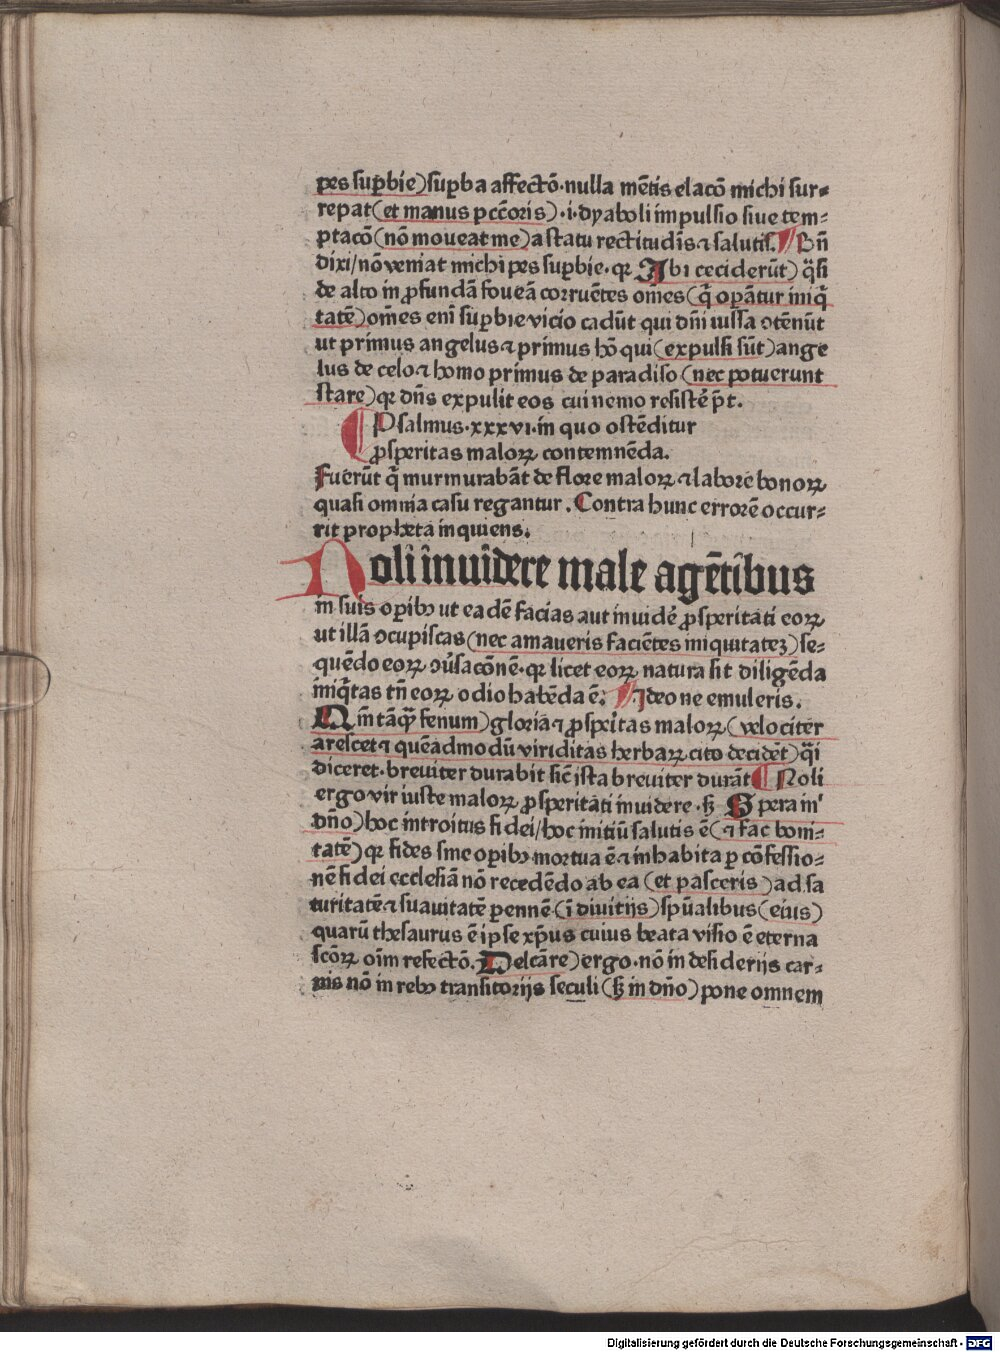 pes suꝑbie) suꝑba affectō·nulla mētis elacō michi sur⸗
repat (et manus pccōris)·i·dyaboli impulsio siue tem⸗
ptacō (nō moueat me) a statu rectitudīs ⁊ salutis. Bn̄
dixi/nō veniat michi pes suꝑbie·qꝛ Ibi ceciderūt) q̄si
de alto in ꝓfundā foueā corruētes om̄es (q̄ oꝑātur iniq̄
tatē) om̄es enī suꝑbie vicio cadūt qui dn̄i iussa ↄtēnūt
ut primus angelus ⁊ primus hō qui (expulsi sūt) ange
lus de celo ⁊ homo primus de paradiso (nec potuerunt
stare) qꝛ dn̄s expulit eos cui nemo resistē p̄t.
Psalmus·xxxvi·in quo ostēditur
ꝓsperitas maloꝝ contemnēda.
Fuerūt q̄ murmurabāt de flore maloꝝ ⁊ labore bonoꝝ
quasi omnia casu regantur. Contra hunc errorē occur⸗
rit propheta inquiens.
Noli inuidere male agētibus
in suis oꝑibꝫ ut eadē facias aut inuidē ꝓsperitati eoꝝ
ut illā ↄcupiscas (nec amaueris faciētes iniquitateꝫ) se⸗
quēdo eoꝝ ↄūsacōnē·qꝛ licet eoꝝ natura sit diligēda
iniq̄tas tn̄ eoꝝ odio habēda ē. Ideo ne emuleris.
Qm̄ tāqꝫ fenum) gloria ⁊ ꝓsꝑitas maloꝝ (velociter
arescet ⁊ quēadmodū viriditas herbaꝝ cito decidēt) q̄si
diceret·breuiter durabit sic̄ ista breuiter durāt Noli
ergo vir iuste maloꝝ ꝓsperitati inuidere·sꝫ Spera in
dn̄o) hoc introitus fidei/hoc initiū salutis ē (⁊ fac boni⸗
tatē) qꝛ fides sine oꝑibꝫ mortua ē ⁊ inhabita ꝑ cōfessio⸗
nē fidei ecclesiā nō recedēdo ab ea (et pasceris) ad sa
turitatē ⁊ suauitatē ꝑennē (ī diuitijs) spūalibus (eius)
quarū thesaurus ē ipse xp̄us cuius beata visio ē eterna
scōꝝ oīm refectō. Delcāre) ergo·nō in desiderijs car⸗
nis nō in rebꝫ transitorijs seculi (sꝫ in dn̄o) pone omnem
Digitalisierung gefördert durch die Deutsche Forschungsgemeinschaft - DFG